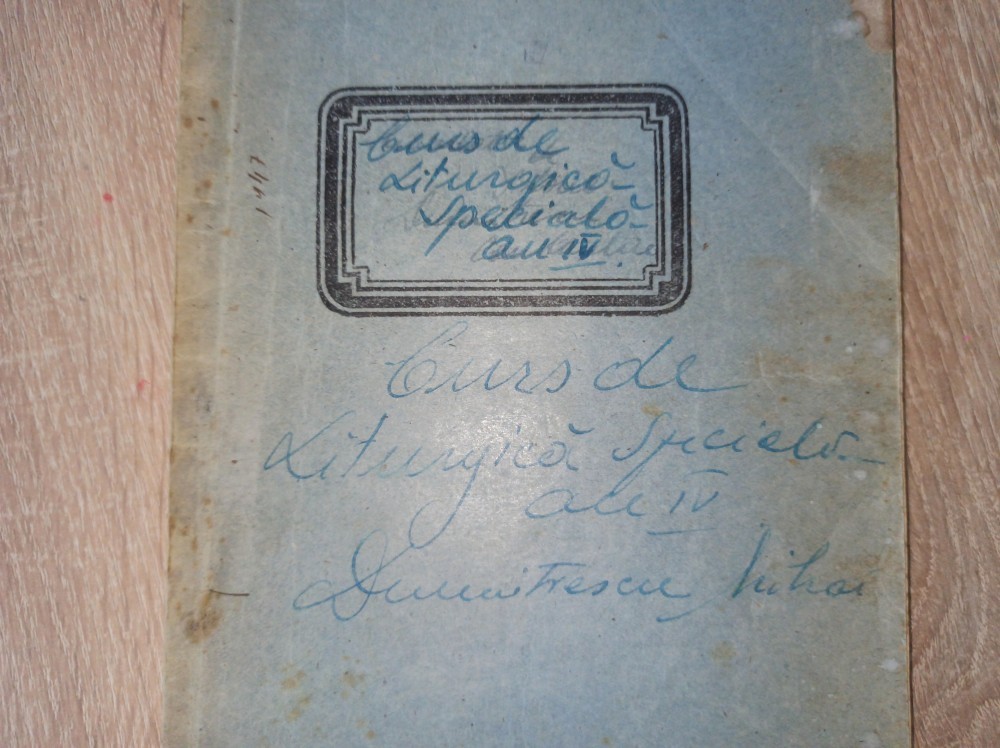 Curs de
Liturgică
Specială
an IV
Curs de
Liturgică Specială
an IV
Dumitrescu Mihai